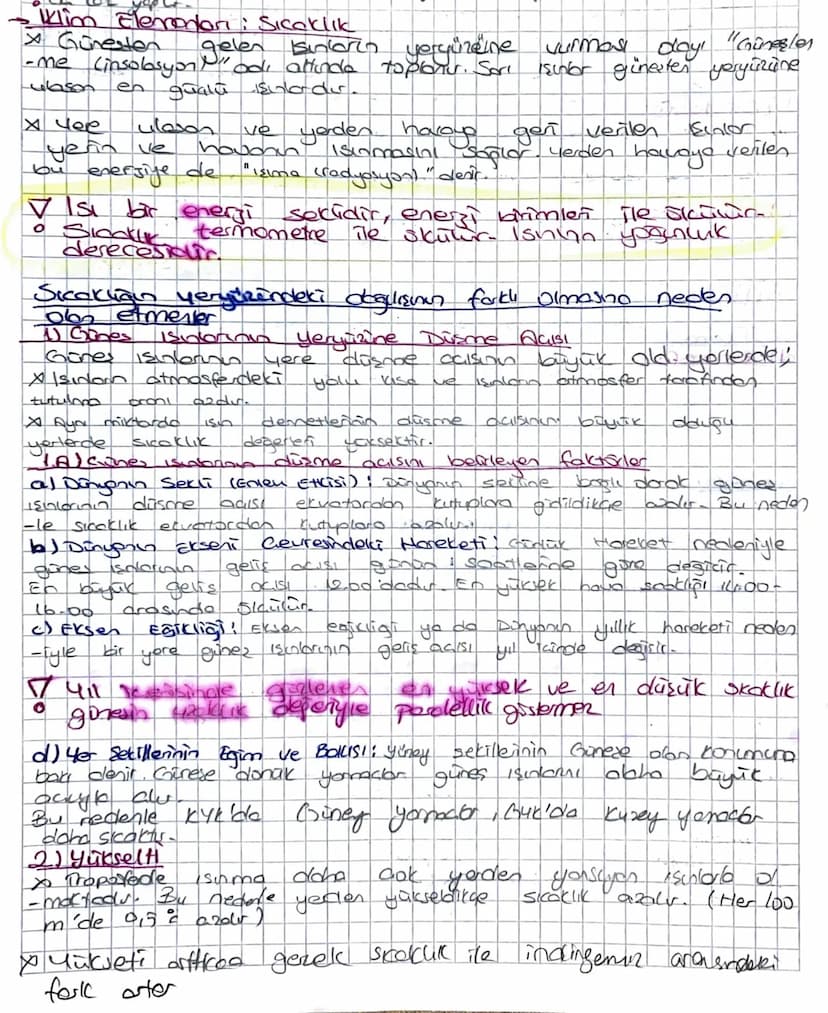 → İklim Elemanları: Sıcaklık
x Güneşten gelen ışınların yeryüzüne vurması olayı "Güneşlen
-me (insolasyon)" adı altında toplanır. Sarı ışınlar güneşten yeryüzüne
ulaşan en güçlü ışınlardır.
x Yere ulaşan ve yerden havaya geri verilen ışınlar
yerin ve havanın ısınmasını sağlar. Yerden havaya verilen
bu enerjiye de "ışıma (radyasyon)" denir.
Isı bir enerji şeklidir, enerji birimleri ile ölçülür.
Sıcaklık termometre ile ölçülür. Isının yoğunluk
derecesidir.
Sıcaklığın yeryüzündeki dağılışının farklı olmasına neden
olan etmenler
1) Güneş Işınlarının Yeryüzüne Düşme Açısı
Güneş ışınlarının yere düşme açısının büyük old. yerlerde;
x Işınların atmosferdeki yolu kısa ve ışınların atmosfer tarafından
tutulma oranı azdır.
x Aynı miktarda ışın demetlerinin düşme açısının büyük olduğu
yerlerde sıcaklık değerleri yüksektir.
1.A) Güneş ışınlarının düşme açısını belirleyen faktörler
a) Dünyanın Şekli (Enlem Etkisi): Dünyanın şekline bağlı olarak güneş
ışınlarının düşme açısı ekvatordan kutuplara gidildikçe azalır. Bu neden
-le sıcaklık ekvatordan kutuplara azalır.
b) Dünyanın Ekseni Çevresindeki Hareketi: Günlük Hareket nedeniyle
güneş ışınlarının geliş açısı günün saatlerine göre değişir.
En büyük geliş açısı 12.00'dadır. En yüksek hava sıcaklığı 14.00-
16.00 arasında ölçülür.
c) Eksen Eğikliği: Eksen eğikliği ya da Dünyanın yıllık hareketi neden
-iyle bir yere güneş ışınlarının geliş açısı yıl içinde değişir.
Yıl içerisinde gözlenen en yüksek ve en düşük sıcaklık
güneşin uzaklık değeriyle paralellik göstermez
d) Yer Şekillerinin Eğim ve Bakısı: Yüzey şekillerinin Güneşe olan konumuna
bakı denir. Güneşe dönük yamaçlar güneş ışınlarını daha büyük
açıyla alır.
Bu nedenle KYK'da Güney yamaçlar, GYK'da Kuzey yamaçlar
daha sıcaktır.
2) Yükselti
x Troposferde ısınma daha çok yerden yansıyan ışınlarla ol
-maktadır. Bu nedenle yerden yükseldikçe sıcaklık azalır. (Her 100
m'de 0,5°C azalır)
x Yükselti arttıkça gerçek sıcaklık ile indirgenmiş arasındaki
fark artar